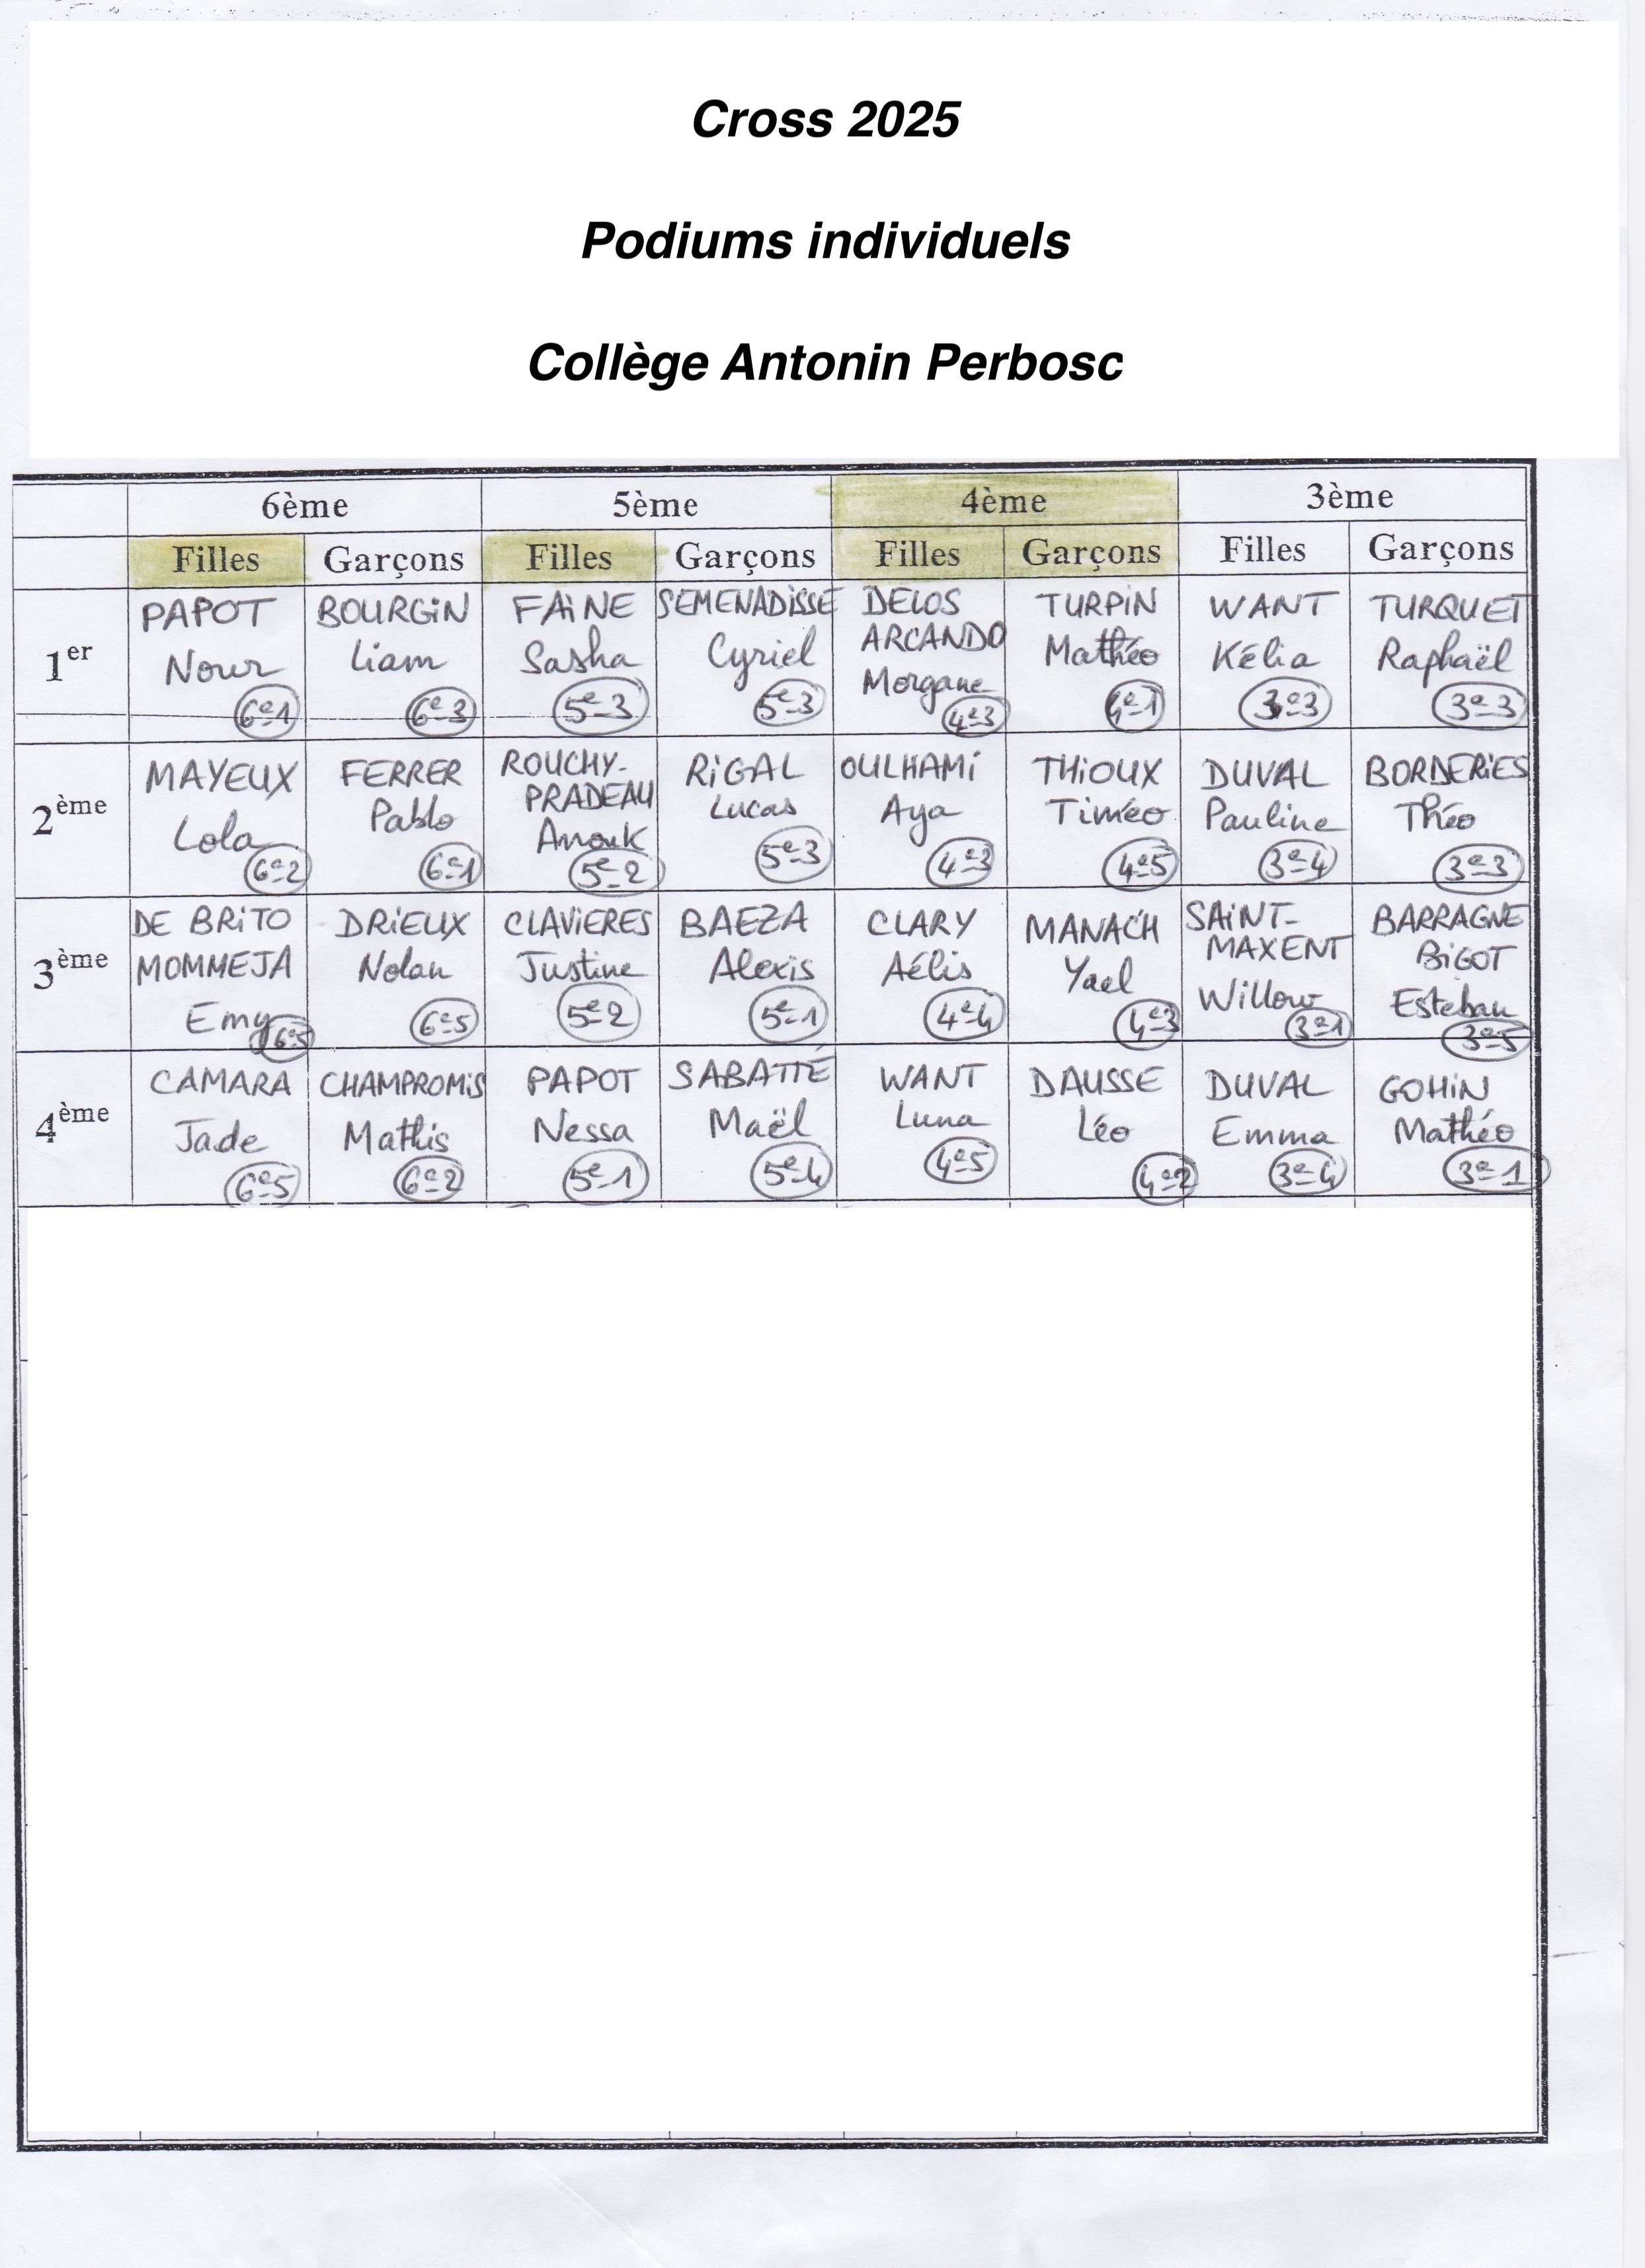 Cross 2025
Podiums individuels
Collège Antonin Perbosc
6ème 5ème 4ème 3ème
Filles Garçons Filles Garçons Filles Garçons Filles Garçons
1er
PAPOT
Nour
6e-1
BOURGiN
Liam
6e-3
FAiNE
Sasha
5e-3
SEMENADiSSE
Cyriel
5e-3
DELOS
ARCANDO
Morgane
4e-3
TURPiN
Mathéo
4e-1
WANT
Kélia
3e-3
TURQUET
Raphaël
3e-3
2ème
MAYEUX
Lola
6e-2
FERRER
Pablo
6e-1
ROUCHY-
PRADEAU
Anouk
5e-2
RiGAL
Lucas
5e-3
OULHAMi
Aya
4e-3
THiOUX
Timéo
4e-5
DUVAL
Pauline
3e-4
BORDERiES
Théo
3e-3
3ème
DE BRiTO
MOMMEJA
Emy
6e-5
DRiEUX
Nolan
6e-5
CLAViERES
Justine
5e-2
BAEZA
Alexis
5e-1
CLARY
Aélis
4e-4
MANAC'H
Yael
4e-3
SAiNT-
MAXENT
Willow
3e-1
BARRAGNE
BiGOT
Esteban
3e-5
4ème
CAMARA
Jade
6e-5
CHAMPROMiS
Mathis
6e-2
PAPOT
Nessa
5e-1
SABATTÉ
Maël
5e-4
WANT
Luna
4e-5
DAUSSE
Léo
4e-2
DUVAL
Emma
3e-4
GOHiN
Mathéo
3e-1